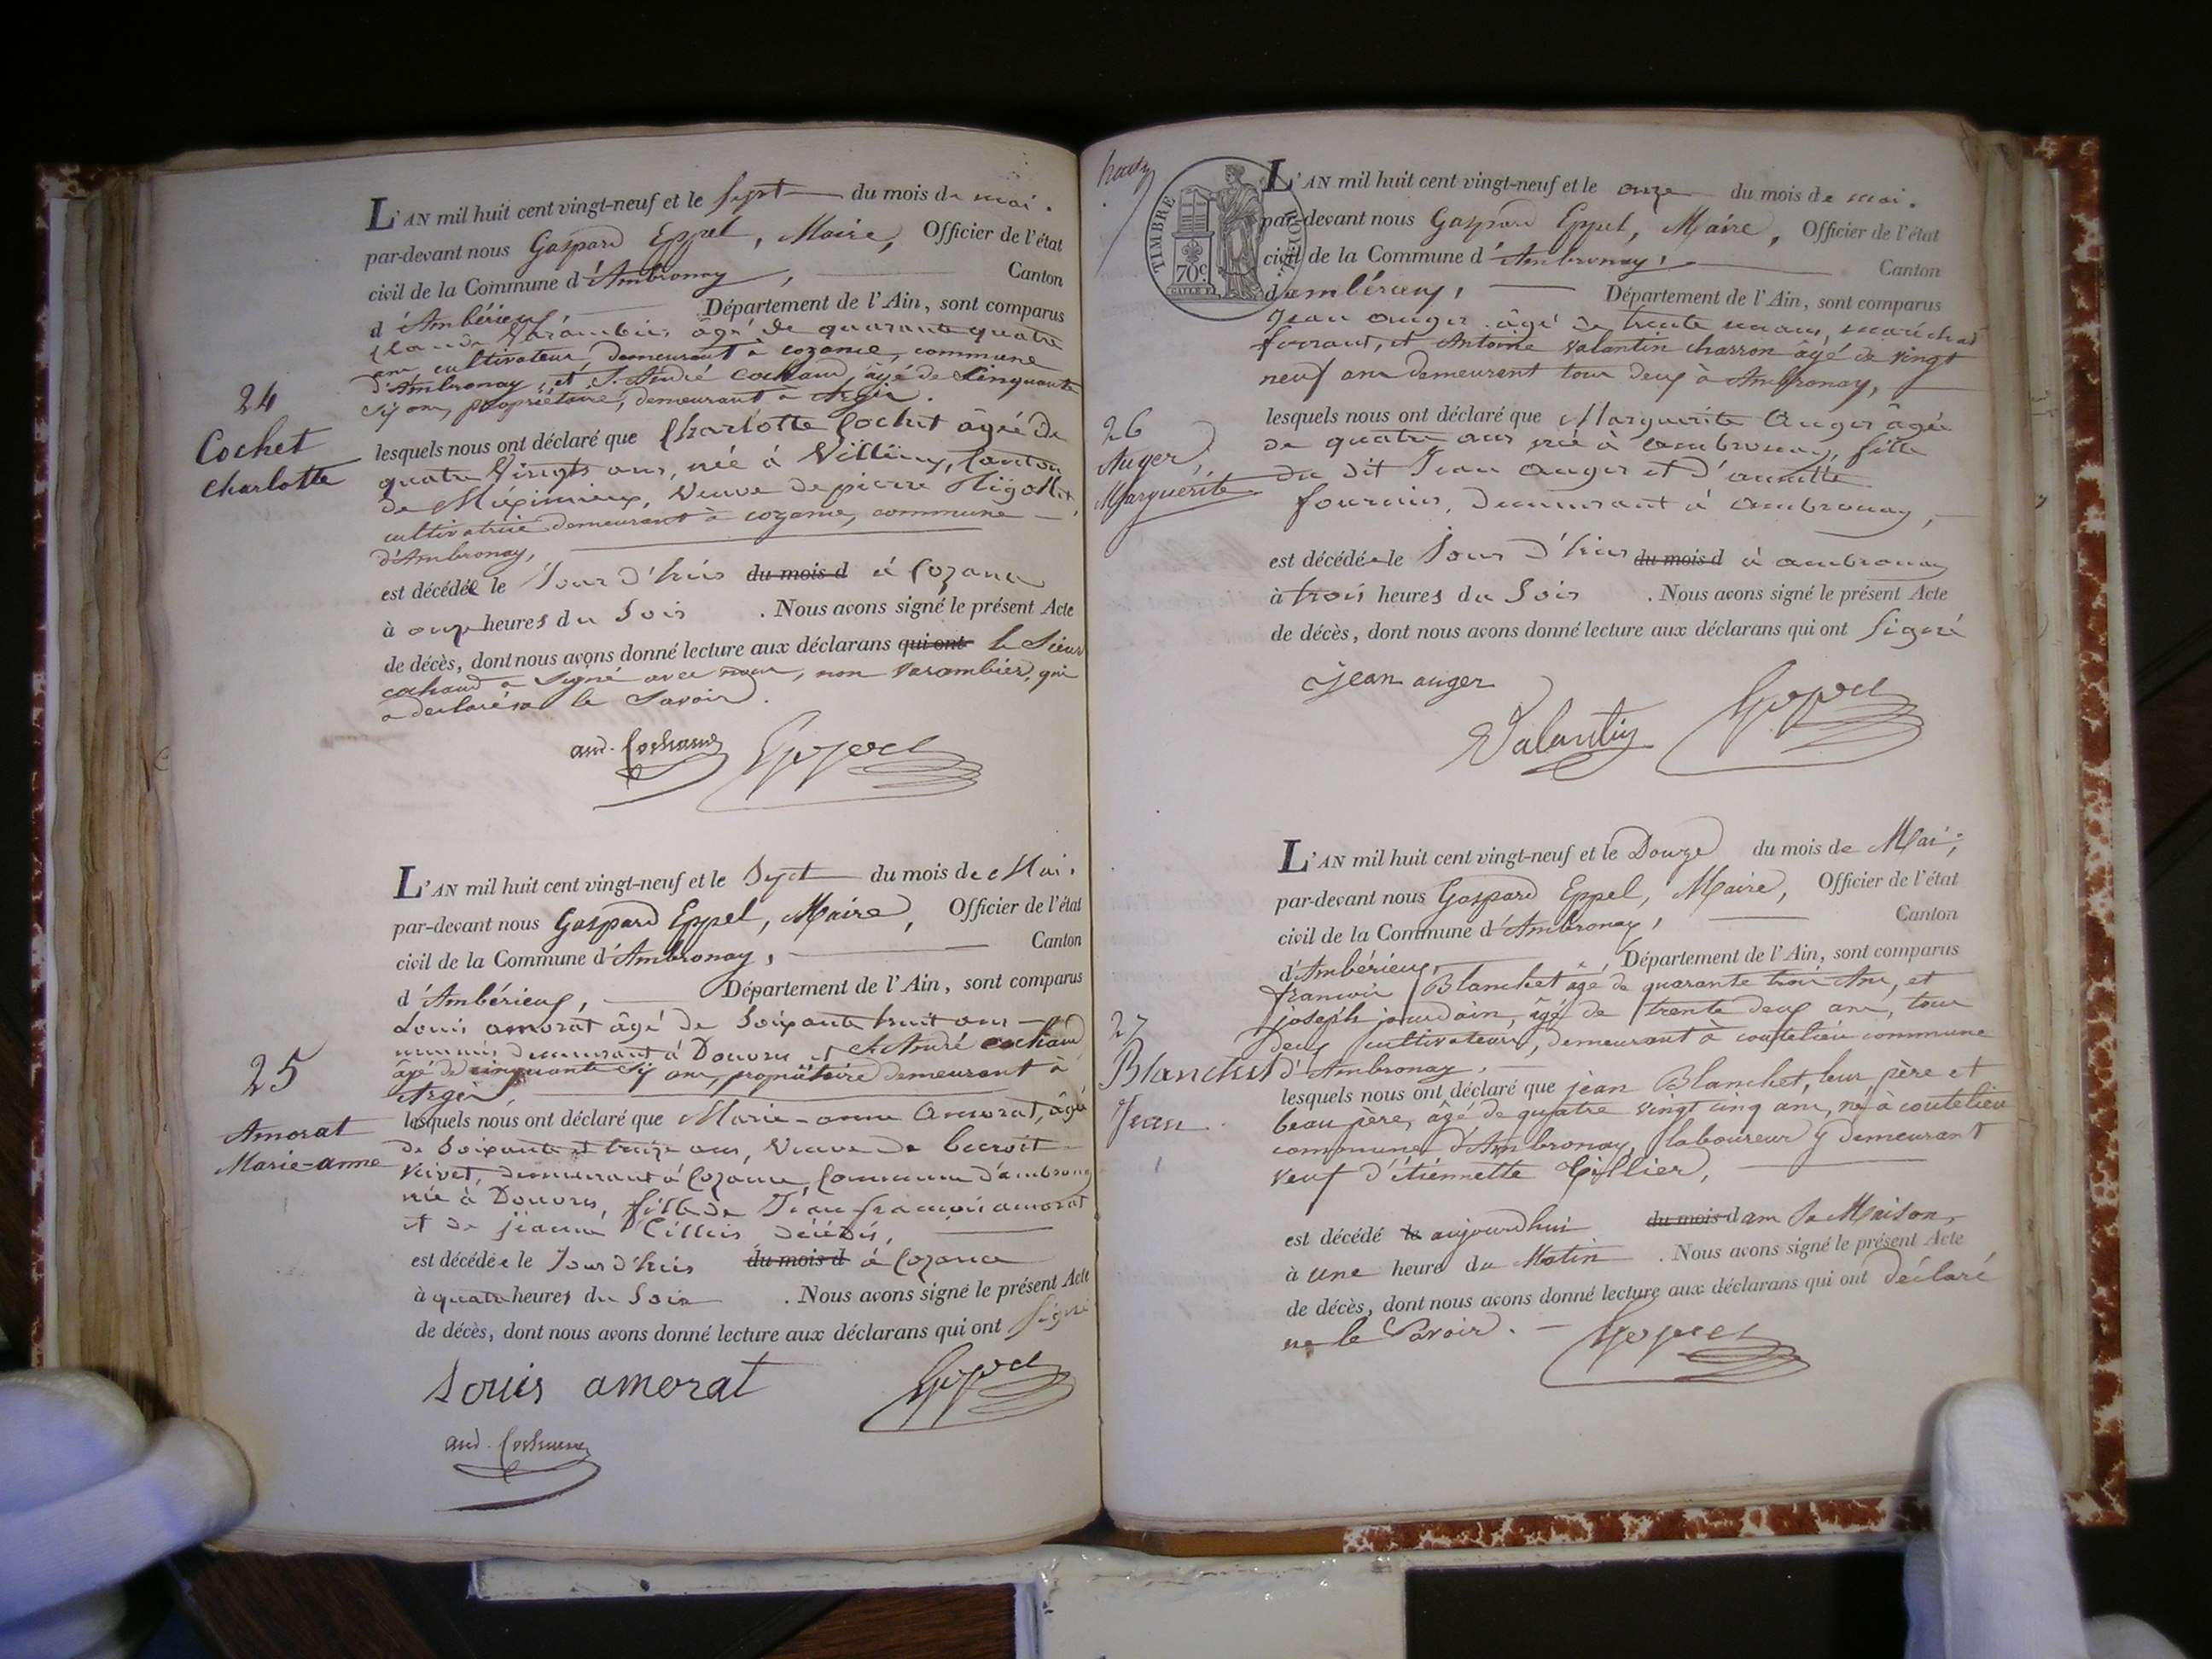 24
Cochet
Charlotte
L'AN mil huit cent vingt-neuf et le sept du mois de mai.
par-devant nous Gaspard Eppel, Maire, Officier de l'état
civil de la Commune d'Ambronay, Canton
d'Ambérieux Département de l'Ain, sont comparus
Claude Varambier âgé de quarante quatre
ans cultivateur, demeurant à cozance, commune
d'Ambronay, et S. André cochaud, âgé de Cinquante
six ans, propriétaire, demeurant à Argis.
lesquels nous ont déclaré que Charlotte Cochet âgée de
quatre Vingts ans, née à Villieu, Canton
de Méximieux, Veuve de pierre
cultivatrice demeurant à cozance, commune
d'Ambronay,
est décédée le Jour d'hier du mois d à Cozance
à onze heures du Soir . Nous avons signé le présent Acte
de décès, dont nous avons donné lecture aux déclarans qui ont le Sieur
cochaud a Signé avec nous, non Varambier, qui
a declaré ne le Savoir.
and. Cochaud Eppel
25
Amorat
Marie-anne
L'AN mil huit cent vingt-neuf et le Sept du mois de Mai.
par-devant nous Gaspard Eppel, Maire, Officier de l'état
civil de la Commune d'Ambronay, Canton
d'Ambérieux, Département de l'Ain, sont comparus
Louis amorat âgé de Soixante huit ans
demeurant à Douvres et S. André cochaud
âgé de cinquante six ans, propriétaire demeurant à
Argis,
lesquels nous ont déclaré que Marie-anne Amorat, âgée
de Soixante et treize ans, Veuve de benoit
vivet, demeurant à Cozance, Commune d'ambronay
née à Douvres, fille de Jean francois amorat
et de jeanne Tillier décédés,
est décédée le Jour d'hier du mois d à Cozance
à quatre heures du Soir . Nous avons signé le présent Acte
de décès, dont nous avons donné lecture aux déclarans qui ont signé
Louis amorat Eppel
and. Cochaud
TIMBRE ROYAL
70c
26
Auger
Marguerite
L'AN mil huit cent vingt-neuf et le onze du mois de mai.
par-devant nous Gaspard Eppel, Maire, Officier de l'état
civil de la Commune d'Ambronay, Canton
d'ambérieux, Département de l'Ain, sont comparus
Jean auger âgé de trente un ans, maréchal
ferrant, et Antoine valantin charron âgé de vingt
neuf ans demeurant tous deux à Ambronay,
lesquels nous ont déclaré que Marguerite Auger âgée
de quatre ans née à ambronay, fille
du dit Jean Auger et d'annette
fournier, demeurant à ambronay,
est décédée le Jour d'hier du mois d à ambronay
à trois heures du Soir . Nous avons signé le présent Acte
de décès, dont nous avons donné lecture aux déclarans qui ont Signé
jean auger
Valantin Eppel
27
Blanchet
Jean
L'AN mil huit cent vingt-neuf et le Douze du mois de Mai,
par-devant nous Gaspard Eppel, Maire, Officier de l'état
civil de la Commune d'Ambronay, Canton
d'Ambérieux, Département de l'Ain, sont comparus
francois Blanchet âgé de quarante trois Ans, et
joseph jourdain, âgé de trente deux ans, tous
deux cultivateurs, demeurant à coutelieu commune
d'Ambronay,
lesquels nous ont déclaré que jean Blanchet, leur père et
beau père, âgé de quatre vingt cinq ans, né à coutelieu
commune d'Ambronay, laboureur y demeurant
veuf d'étiennette Tillier,
est décédé le aujourd'hui du mois dans Sa Maison,
à une heure du Matin . Nous avons signé le présent Acte
de décès, dont nous avons donné lecture aux déclarans qui ont déclaré
ne le Savoir. Eppel